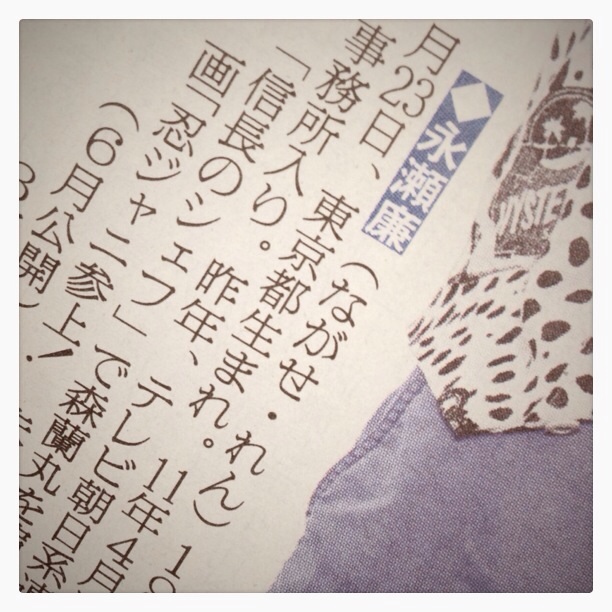 ◆永瀬廉(ながせ・れん)1
月23日、東京都生まれ。11年4月
事務所入り。昨年、テレビ朝日系
「信長のシェフ」で森蘭丸を
画「忍ジャニ参上!
(6月公開)